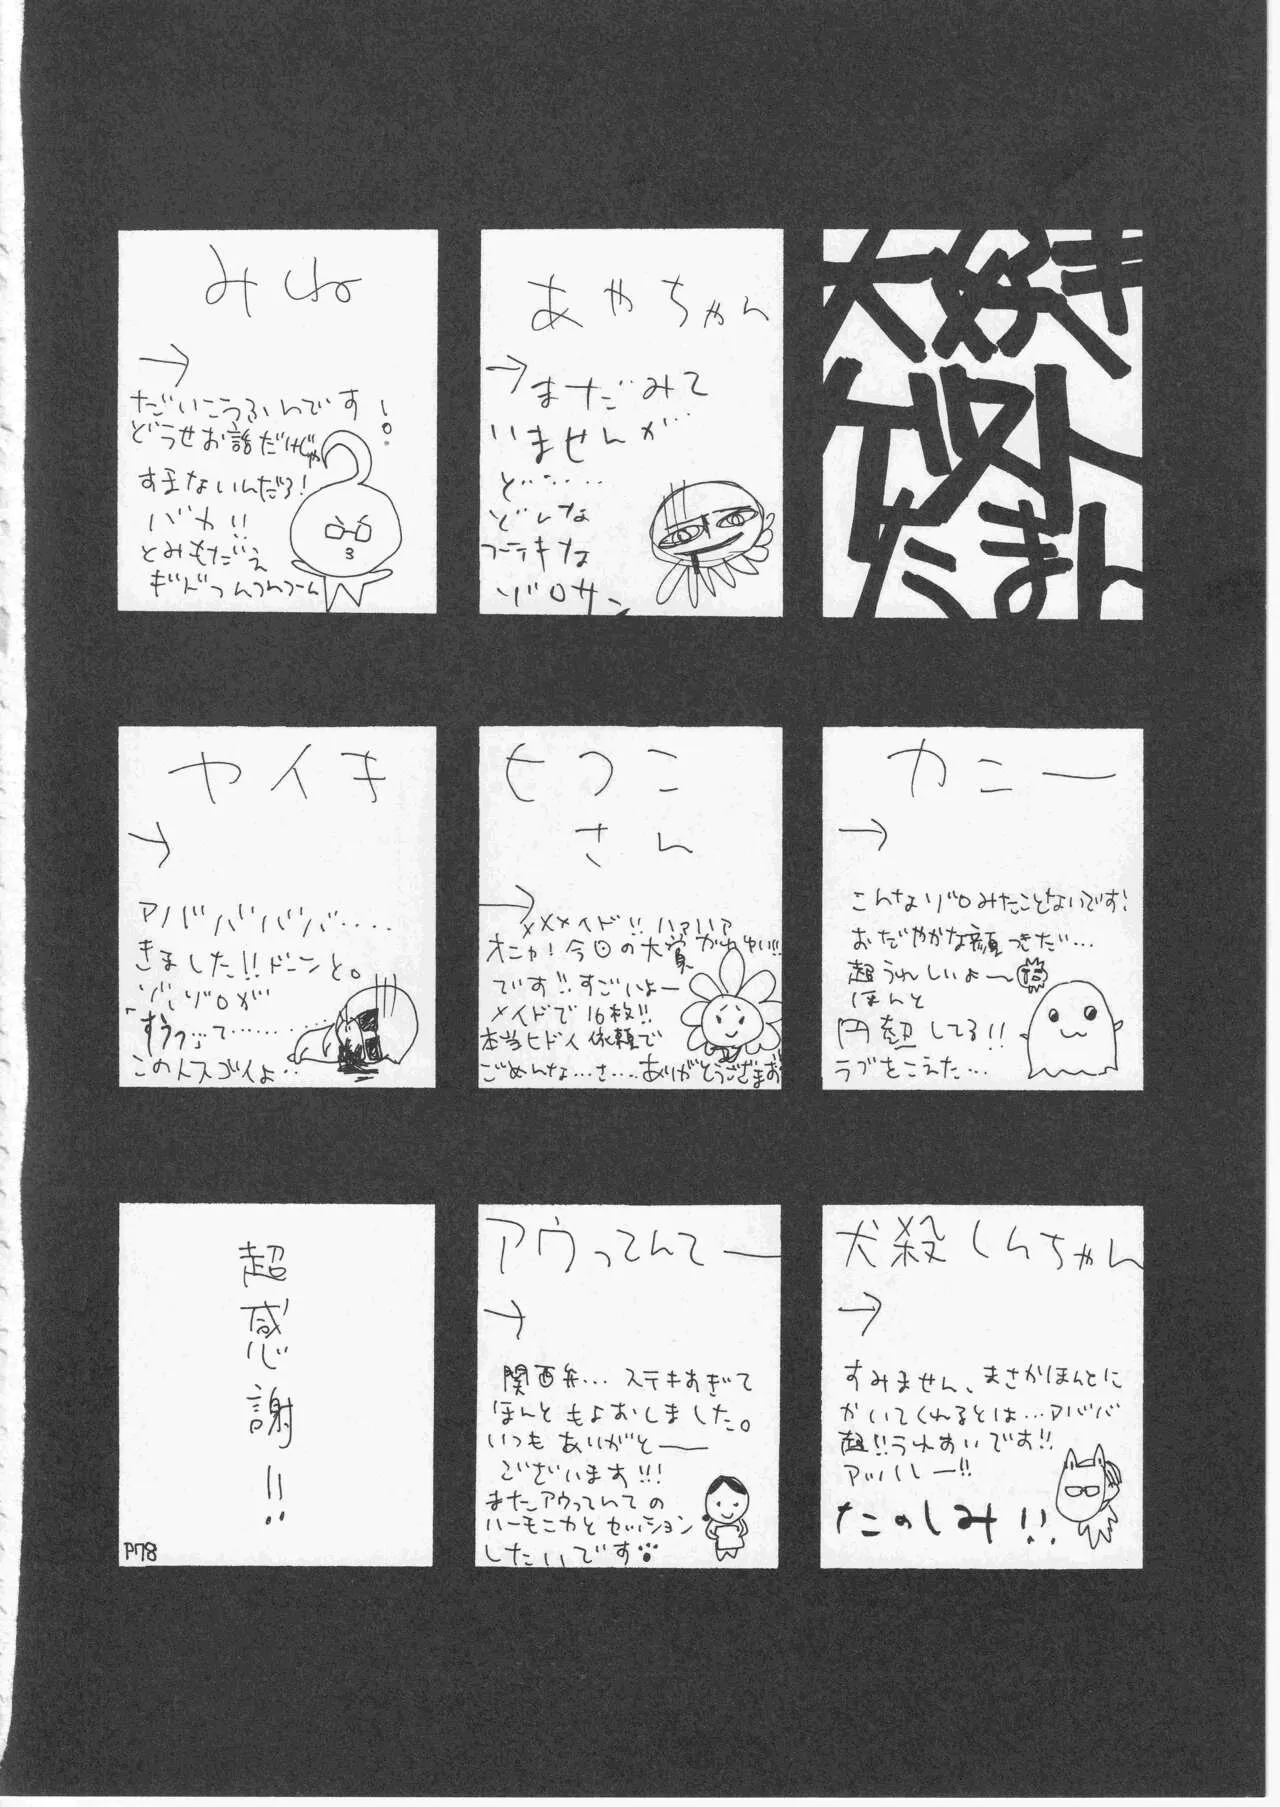 大好き
ゲスト
たまん
あやちゃん
→
まだみて
いませんが…
ど……
どんな
ステキな
ゾロサン
みね
→
だいこうふんです!
どうせお話だけじゃ
すまないんだろ!
バカ!!
カニー
→
こんなゾロみたことないです!
おだやかな顔つきだ…
超うれしいよー
ほんと
円熟してる!!
ラブをこえた…
ヒフこ
さん
→
メメメイド!! ハァハァ
オニャ!今回の大賞かわゆい!!
です!!すごいよー
メイドで16枚!!
本当ヒドイ依頼で
ごめんな…さ…ありがとうござます
ヤイキ
→
アババババ....
きました!!ドーンと。
ゾ、ゾロが
「すうっ」って……
この人スゴイよ…
犬殺しんちゃん
→
すみません、まさかほんとに
かいてくれるとは…アババ
超!!うれすいです!!
アッパレー!!
たのしみ!!
アウってんてー
→
関西弁…ステキすぎて
ほんともよおしました。
いつもありがとー
ございます!!!
またアウってんての
ハーモニカとセッション
したいです
超感謝!!
P78